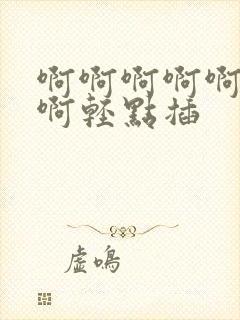 啊啊啊啊啊
啊輕點插
虛鳴